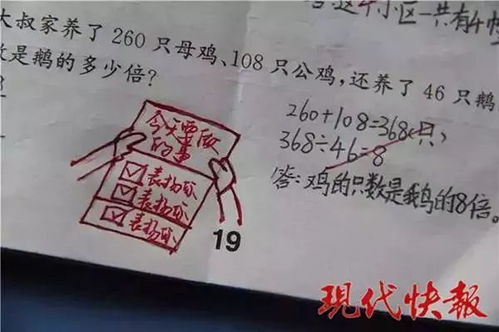 小区一共有4
大叔家养了260只母鸡、108只公鸡，还养了46只鹅
数是鹅的多少倍？
260+108=368(只)
368÷46=8
答：鸡的只数是鹅的8倍。
今天要做
的事
表扬你
表扬你
表扬你
19
现代快報